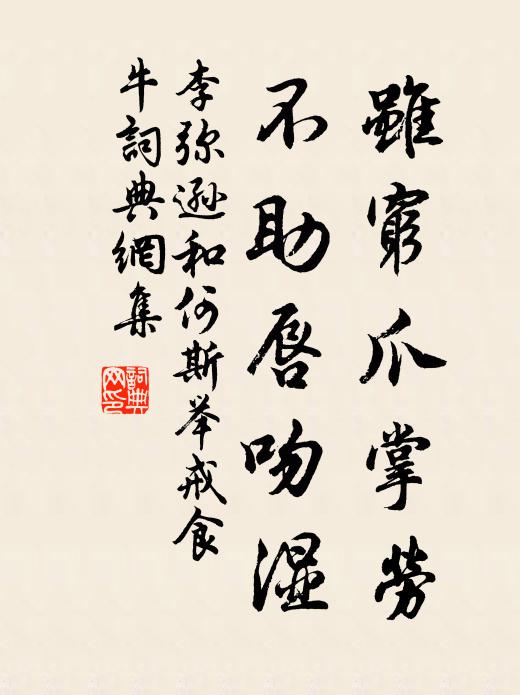 雖窮爪掌勞
不助唇吻濕
李弥遜和何斯举戒食
牛詞典網集
詞典
网印